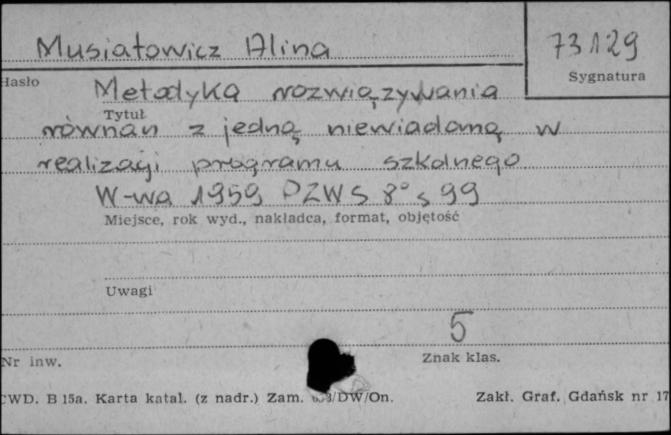 Musiatowicz Alina
73129
Sygnatura
Hasło
Metodyka rozwiązywania
Tytuł
równań z jedną niewiadomą w
realizacji programu szkolnego
W-wa 1959 PZWS 8° s 99
Miejsce, rok wyd., nakładca, format, objętość
Uwagi
5
Nr inw.
Znak klas.
CWD. B 15a. Karta katal. (z nadr.) Zam. /DW/On.
Zakł. Graf. Gdańsk nr 17